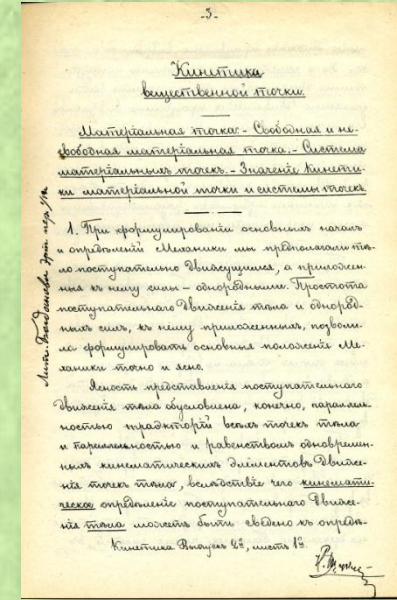 -3-
Кинетика
вещественной точки.
Матерiальная точка. - Свободная и не-
свободная матерiальная точка. - Система
матерiальныхъ точекъ. - Значенiе Кинети-
ки матерiальной точки и системы точекъ.
1. При формулированiи основныхъ началъ
и опредѣленiй Механики мы предполагали тѣ-
ло поступательно движущимся, а приложен-
ныя къ нему силы - однородными. Простота
поступательнаго движенiя тѣла и однород-
ныхъ силъ, къ нему приложенныхъ, позволи-
ла формулировать основныя положенiя Ме-
ханики точно и ясно.
Ясность представленiя поступательнаго
движенiя тѣла обусловлена, конечно, параллель-
ностью траэкторiй всѣхъ точекъ тѣла
и параллельностью и равенствомъ одновремен-
ныхъ кинематическихъ элементовъ движе-
нiя точекъ тѣла, вслѣдствiе чего кинемати-
ческое опредѣленiе поступательнаго движе-
нiя тѣла можетъ быть сведено къ опредѣ-
Кинетика Выпускъ 2й, листъ 1й.
Лит. Богданова